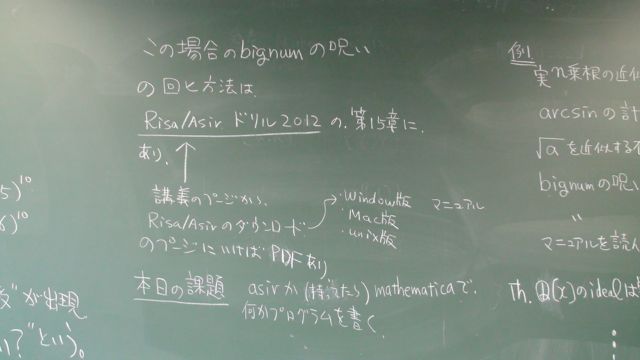 この場合のbignumの呪い
の回ヒ方法は
Risa/Asir ドリル2012 の、第15章に、
あり、
講義のページから、
Risa/Asirのダウンロード
のページにいけば PDFあり
・Window版
・Mac版
・unix版
マニュアル
本日の課題 asirか(持ってたら) mathematicaで、
何かプログラムを書く
5)¹⁰
6)¹⁰
"が出現
い?"という。
例
実n乗根の近似
arcsinの計
√a を近似する
bignumの呪い
〃
マニュアルを読
Th. (x)のidealは